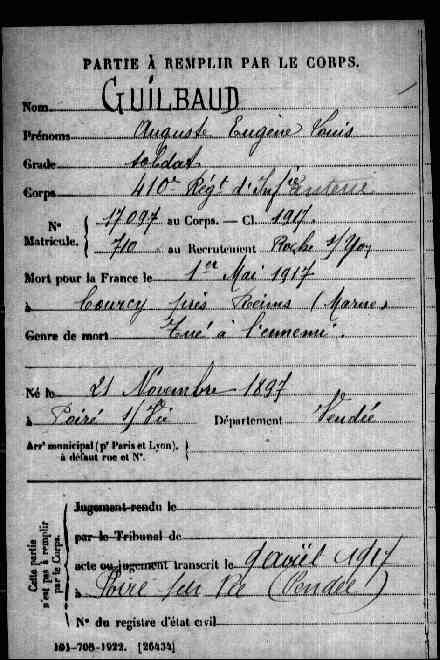 PARTIE À REMPLIR PAR LE CORPS.
Nom GUILBAUD
Prénoms Auguste Eugène Louis
Grade soldat
Corps 410e Régt d'Infie Infanterie
No Matricule. { 17097 au Corps. — Cl. 1917.
710 au Recrutement Roche s/Yon
Mort pour la France le 1er Mai 1917
à Courcy près Reims (Marne)
Genre de mort Tué à l'ennemi.
Né le 21 Novembre 1897
à Poiré s/Vie Département Vendée
Arrt municipal (pr Paris et Lyon), à défaut rue et No. }
Cette partie n'est pas à remplir par le Corps.
Jugement rendu le
par le Tribunal de
acte ou jugement transcrit le 9 août 1917
à Poiré sur Vie (Vendée)
No du registre d'état civil
101-708-1922. [26434]